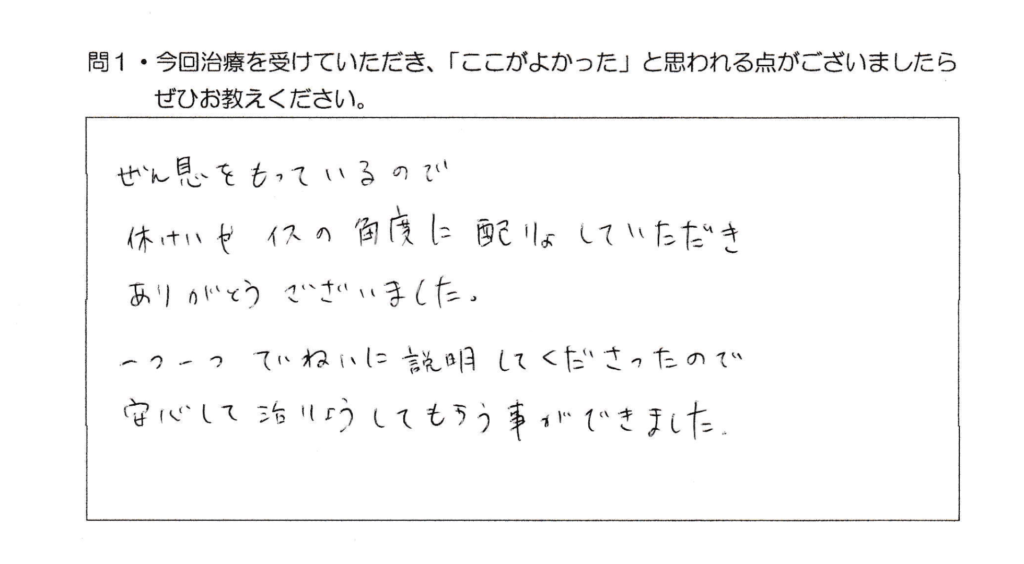 問1・今回治療を受けていただき、「ここがよかった」と思われる点がございましたら
ぜひお教えください。
ぜん息をもっているので
休けいや イスの 角度に 配りょ していただき
ありがとう ございました。
一つ一つ ていねいに 説明 してくださったので
安心して 治りょうしてもらう事ができました.